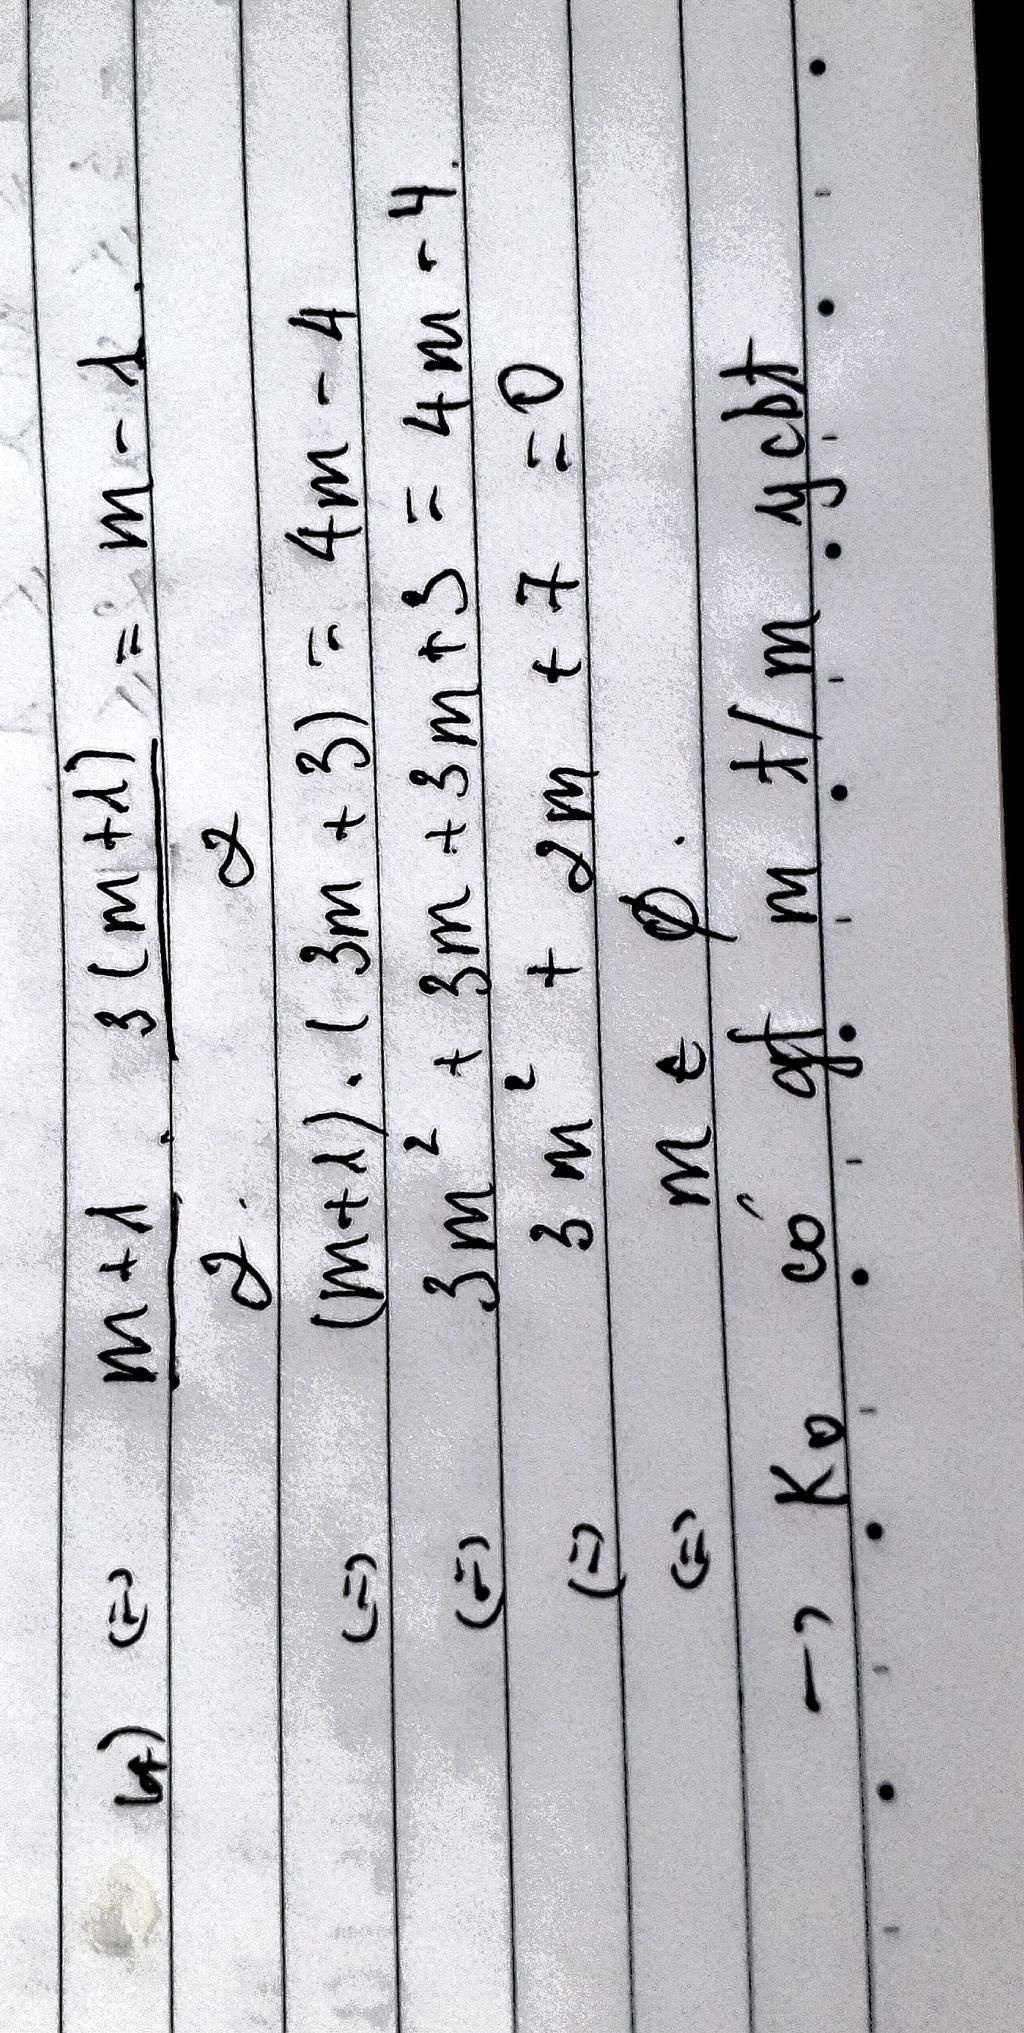 (*) (=) m+1/2 . 3(m+1)/2 = m-1.
(=) (m+1).(3m+3) = 4m-4
(=) 3m² + 3m + 3m + 3 = 4m - 4.
(=) 3m² + 2m + 7 = 0
(=) m ∈ ∅.
→ Ko có gt m t/m ycbt